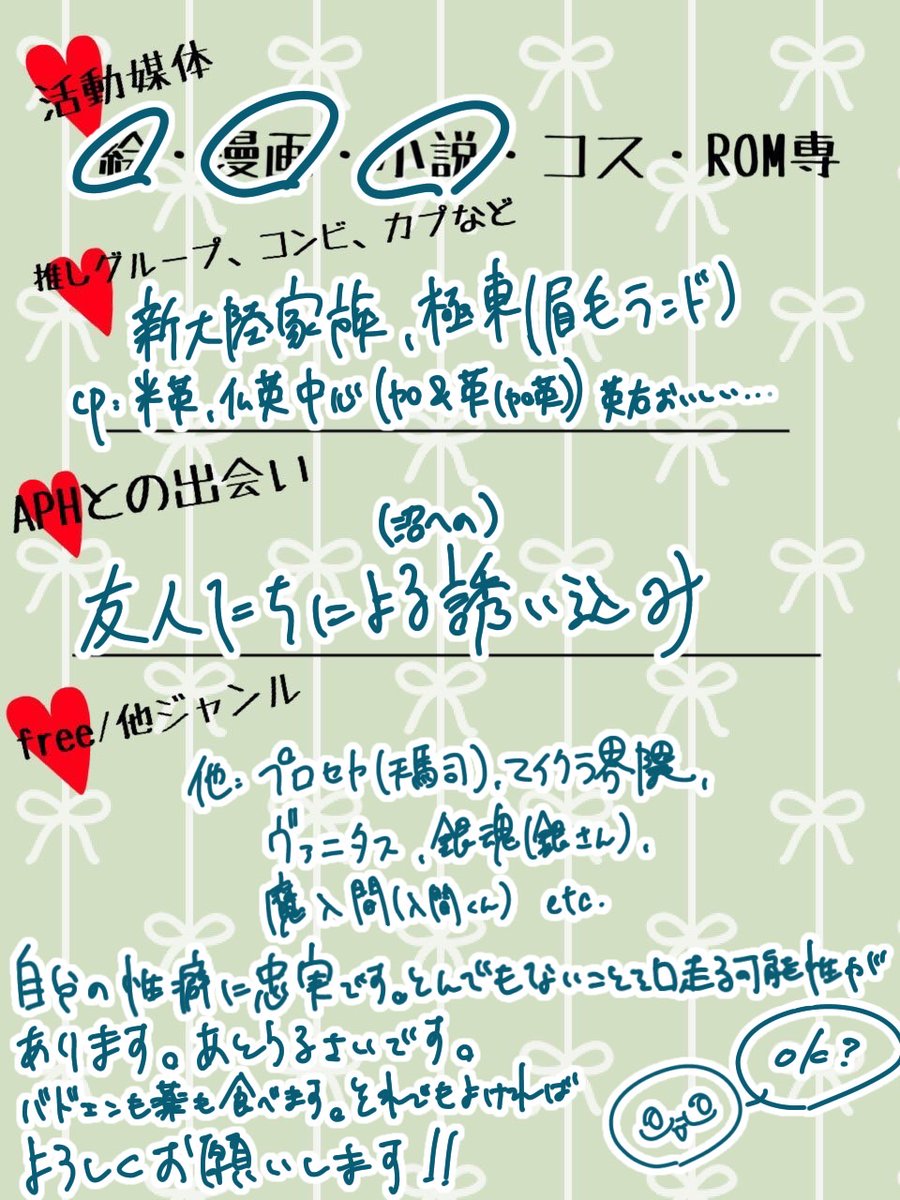 活動媒体
絵・漫画・小説・コス・ROM専
推しグループ、コンビ、カプなど
新大陸家族、極東(眉毛ランド)
cp:米英、仏英中心(加&英(加英))英右おいしい…
APHとの出会い
(沼への)
友人たちによる誘い込み
free/他ジャンル
他:プロセカ(天馬司)、マイクラ界隈、
ヴァニタス、銀魂(銀さん)、
魔入間(入間くん) etc.
自分の性癖に忠実です。とんでもないこと口走る可能性が
あります。あとうるさいです。
バドエンも薬も食べます。それでもよければ
よろしくお願いします!!
ok?